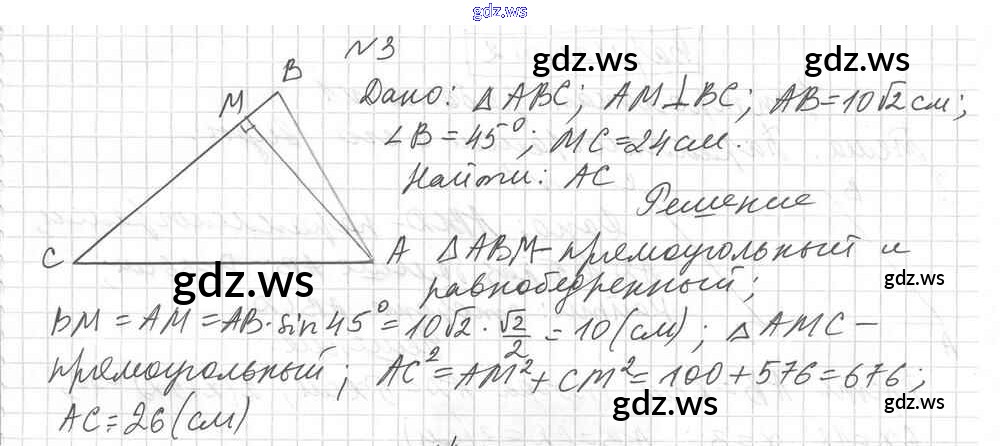 gdz.ws
N3
gdz.ws gdz.ws
B
M
Дано: △ABC; AM⊥BC; AB=10√2 см;
∠B=45°; MC=24 см.
Найти: AC
Решение
C
A
△ABM- прямоугольный и
равнобедренный;
gdz.ws
gdz.ws
BM = AM = AB·sin 45° = 10√2 · √2/2 = 10 (см); △AMC -
прямоугольный; AC² = AM² + CM² = 100 + 576 = 676;
AC = 26 (см)
gdz.ws
gdz.ws